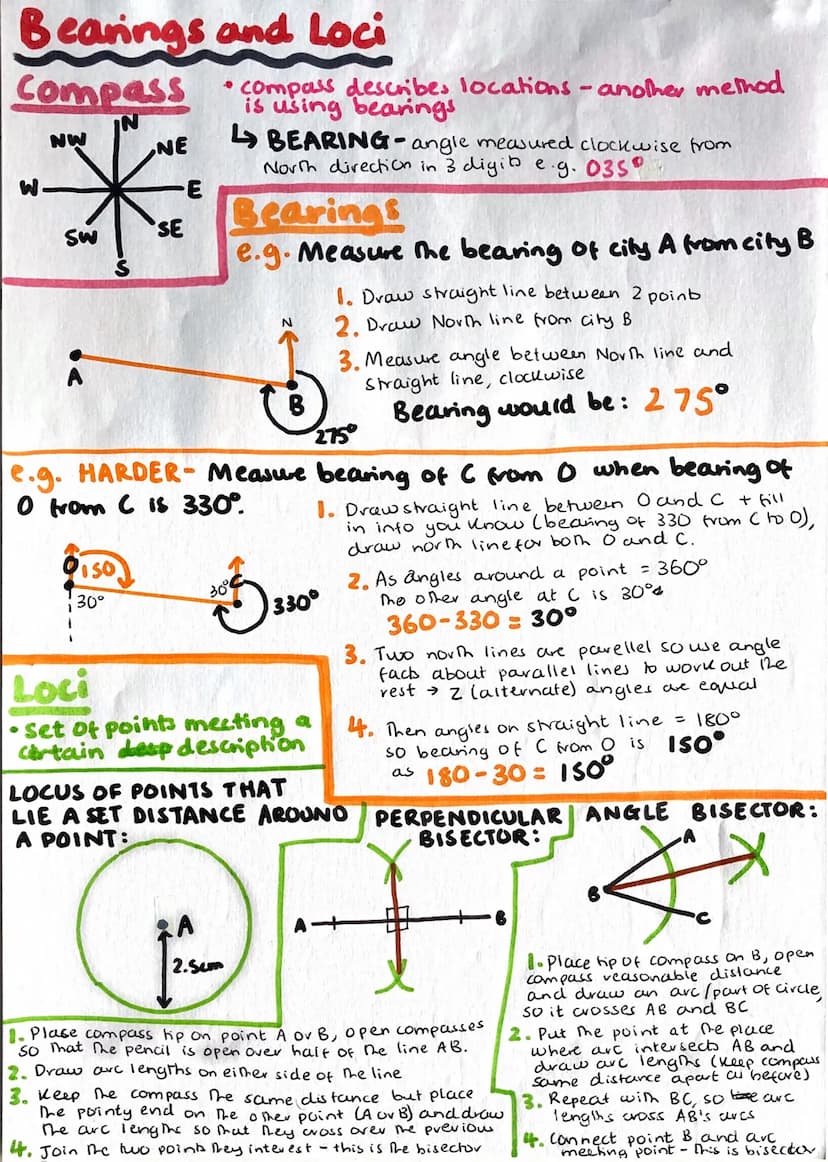 Bearings and Loci
Compass
• compass describes locations - another method
is using bearings
↳ BEARING - angle measured clockwise from
North direction in 3 digits e.g. 035°
N
NW
NE
W
E
SW
SE
S
Bearings
e.g. Measure the bearing of city A from city B
1. Draw straight line between 2 points
2. Draw North line from city B
3. Measure angle between North line and
straight line, clockwise
Bearing would be: 275°
N
A
B
275°
e.g. HARDER - Measure bearing of C from O when bearing of
O from C is 330°.
1. Draw straight line between O and C + fill
in info you know (bearing of 330 from C to O),
draw north line for both O and C.
2. As angles around a point = 360°
the other angle at C is 30°
360-330 = 30°
3. Two north lines are parellel so use angle
facts about parallel lines to work out the
rest → Z (alternate) angles are equal
4. Then angles on straight line = 180°
so bearing of C from O is 150°
as 180-30 = 150°
O
150
30°
30°
C
330°
Loci
• set of points meeting a
certain desp description
LOCUS OF POINTS THAT
LIE A SET DISTANCE AROUND
A POINT:
A
2.5cm
PERPENDICULAR
BISECTOR:
A
B
ANGLE BISECTOR:
A
B
C
1. Place compass tip on point A or B, open compasses
so that the pencil is open over half of the line AB.
2. Draw arc lengths on either side of the line
3. Keep the compass the same distance but place
the pointy end on the other point (A or B) and draw
the arc lengths so that they cross over the previous
4. Join the two points they interest - this is the bisector
1. Place tip of compass on B, open
compass reasonable distance
and draw an arc/part of circle,
so it crosses AB and BC
2. Put the point at the place
where arc intersects AB and
draw arc lengths (keep compass
same distance apart as before)
3. Repeat with BC, so the arc
lengths cross AB's arcs
4. Connect point B and arc
meeting point - this is bisector